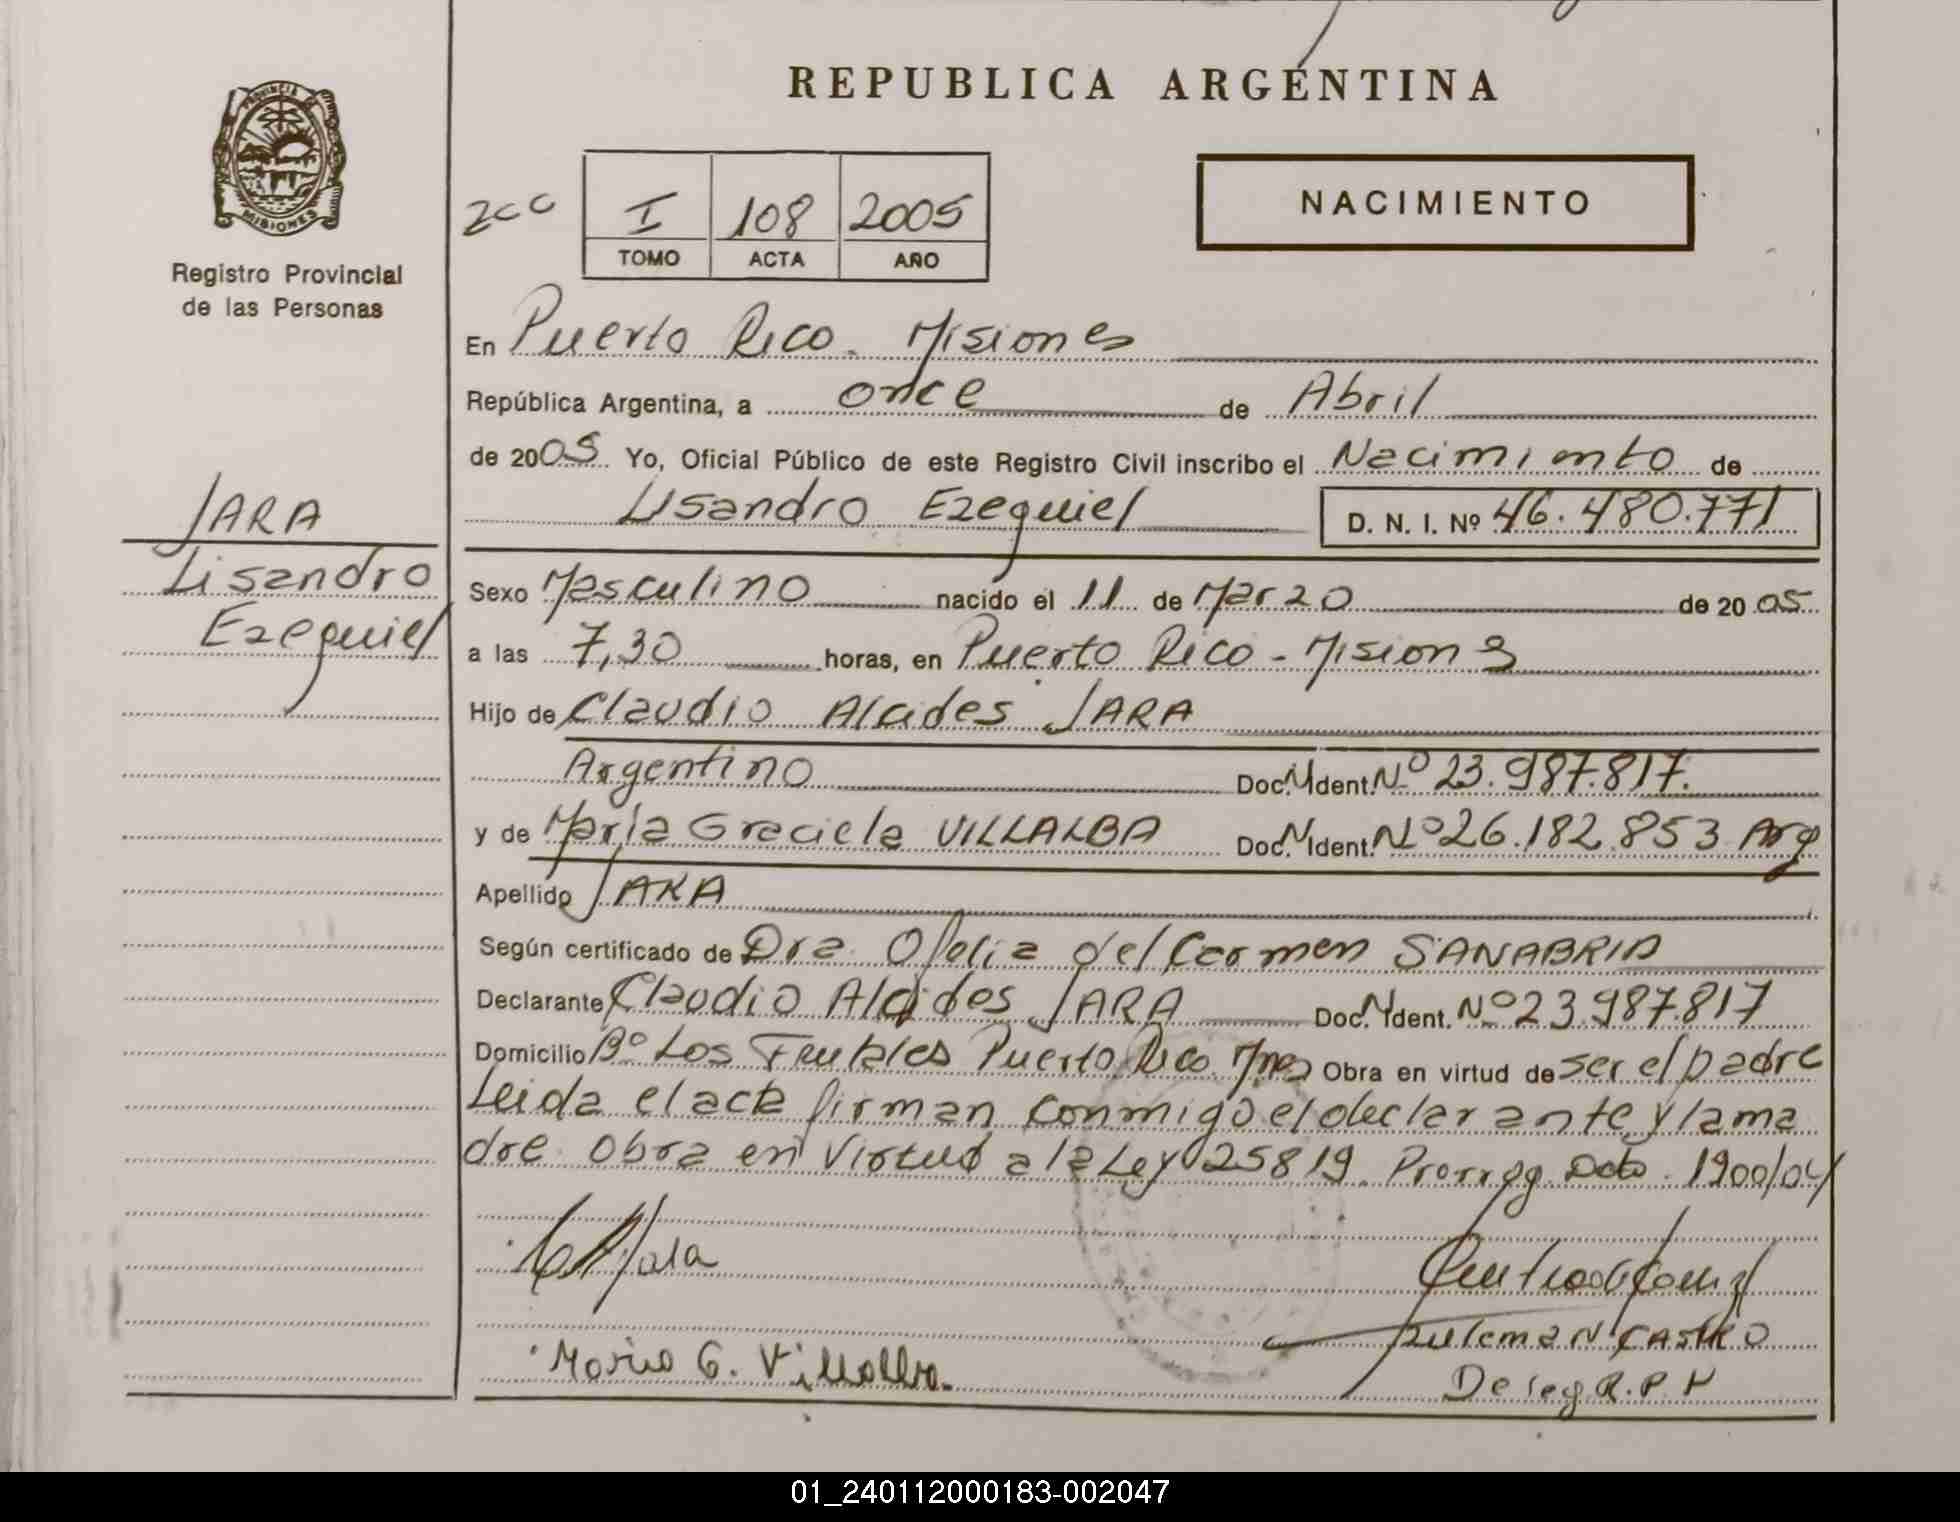 REPUBLICA ARGENTINA
PROVINCIA DE
MISIONES
Registro Provincial
de las Personas
NACIMIENTO
I 108 2005
TOMO ACTA AÑO
En Puerto Rico - Misiones
República Argentina, a once de Abril
de 2005 Yo, Oficial Público de este Registro Civil inscribo el Nacimiento de
Lisandro Ezequiel D. N. I. Nº 46.480.771
JARA
Lisandro
Ezequiel
Sexo Masculino nacido el 11 de Marzo de 2005
a las 7,30 horas, en Puerto Rico - Misiones
Hijo de Claudio Alcides JARA
Argentino Doc. Ident. Nº 23.987.817.
y de María Graciela VILLALBA Doc. Ident. Nº 26.182.853 Arg
Apellido JARA
Según certificado de Dra. Ofelia del Carmen SANABRIA
Declarante Claudio Alcides JARA Doc. Ident. Nº 23.987.817
Domicilio Bº Los Frutales Puerto Rico Mnes Obra en virtud de ser el padre
Leida el acta firman conmigo el declarante y la ma
dre. Obra en Virtud a la Ley 25819. Prorrog. Dcto. 1900/04
Jara
Maria G. Villalba.
Zulema N. CASTRO
Deleg. R.P.P
01_240112000183-002047